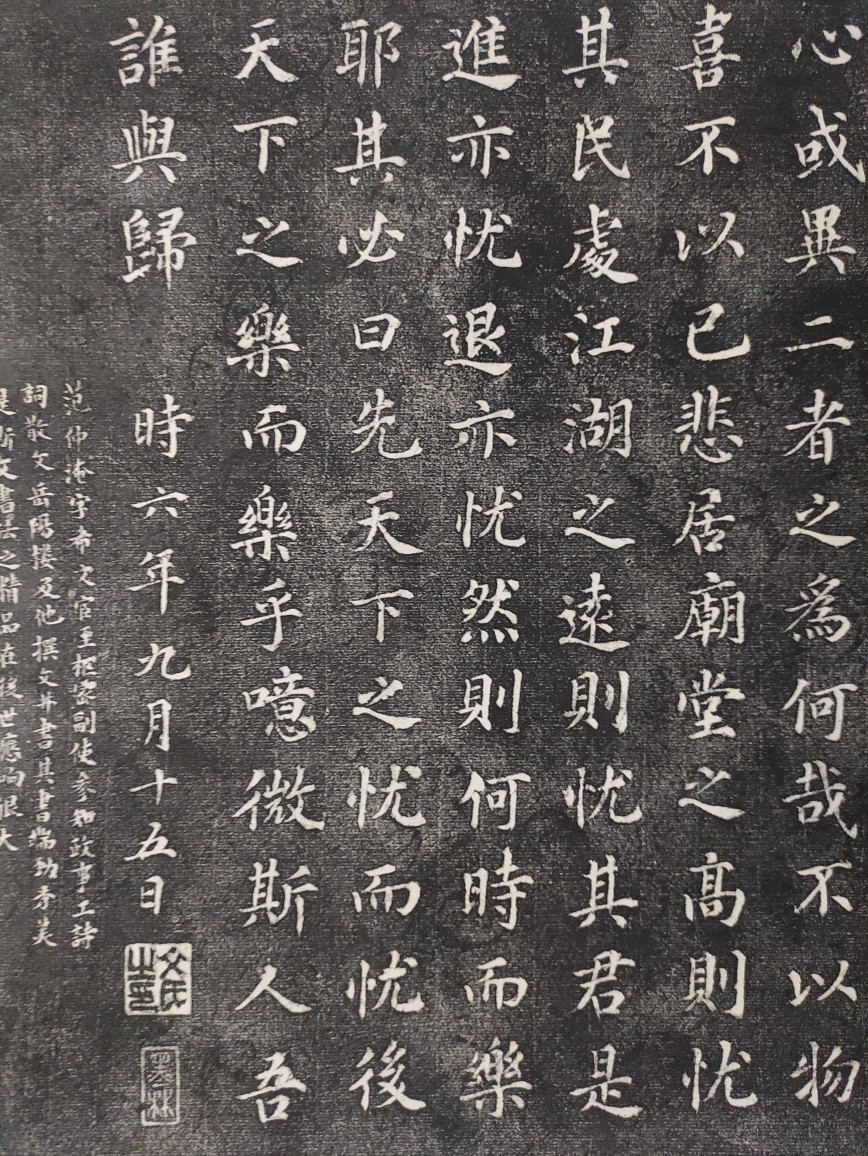 心或異二者之爲何哉不以物
喜不以己悲居廟堂之高則忧
其民處江湖之遠則忧其君是
進亦忧退亦忧然則何時而樂
耶其必曰先天下之忧而忧後
天下之樂而樂乎噫微斯人吾
誰與歸 時六年九月十五日
文氏之印
墨林
范仲淹字希文官至枢密副使参知政事工詩
詞散文岳陽楼及他撰文并書其書端劲秀美
是斯文書法之精品在後世應响很大